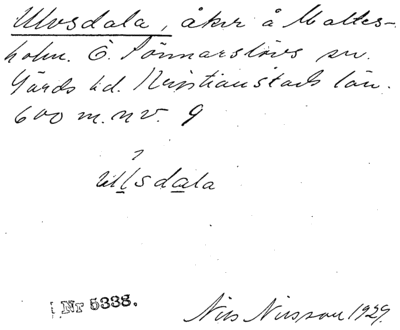 Ulvsdala, åker å Maltes-
holm. Ö. Sönnarslövs sn.
Gärds hd. Kristianstads län.
600 m. nv. 9
úllsdala
Nr 5338.
Nils Nilsson 1929.